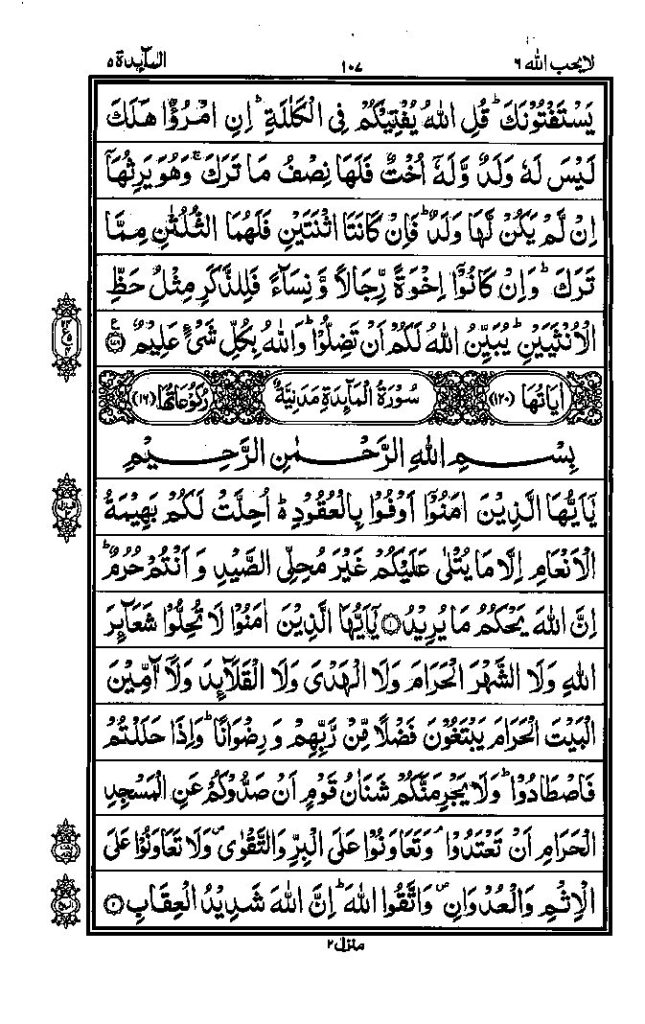 لا يحب الله ٦
١٠٧
المآئدة ٥
يَسْتَفْتُوْنَكَ ؕ قُلِ اللّٰهُ يُفْتِيْكُمْ فِى الْكَلٰلَةِ ؕ اِنِ امْرُؤٌا هَلَكَ
لَيْسَ لَهٗ وَلَدٌ وَّلَهٗۤ اُخْتٌ فَلَهَا نِصْفُ مَا تَرَكَ ۚ وَهُوَ يَرِثُهَاۤ
اِنْ لَّمْ يَكُنْ لَّهَا وَلَدٌ ؕ فَاِنْ كَانَتَا اثْنَتَيْنِ فَلَهُمَا الثُّلُثٰنِ مِمَّا
تَرَكَ ؕ وَاِنْ كَانُوْۤا اِخْوَةً رِّجَالًا وَّ نِسَآءً فَلِلذَّكَرِ مِثْلُ حَظِّ
الْاُنْثَيَيْنِ ؕ يُبَيِّنُ اللّٰهُ لَكُمْ اَنْ تَضِلُّوْا ؕ وَاللّٰهُ بِكُلِّ شَىْءٍ عَلِيْمٌ
اٰيَاتُهَا (١٢٠) سُوْرَةُ الْمَآئِدَةِ مَدَنِيَّةٌ رُكُوْعَاتُهَا (١٦)
بِسْمِ اللّٰهِ الرَّحْمٰنِ الرَّحِيْمِ
يٰۤاَيُّهَا الَّذِيْنَ اٰمَنُوْۤا اَوْفُوْا بِالْعُقُوْدِ ؕ اُحِلَّتْ لَكُمْ بَهِيْمَةُ
الْاَنْعَامِ اِلَّا مَا يُتْلٰى عَلَيْكُمْ غَيْرَ مُحِلِّى الصَّيْدِ وَ اَنْتُمْ حُرُمٌ ؕ
اِنَّ اللّٰهَ يَحْكُمُ مَا يُرِيْدُ ١ يٰۤاَيُّهَا الَّذِيْنَ اٰمَنُوْا لَا تُحِلُّوْا شَعَآئِرَ
اللّٰهِ وَلَا الشَّهْرَ الْحَرَامَ وَلَا الْهَدْىَ وَلَا الْقَلَآئِدَ وَلَاۤ آٰمِّيْنَ
الْبَيْتَ الْحَرَامَ يَبْتَغُوْنَ فَضْلًا مِّنْ رَّبِّهِمْ وَ رِضْوَانًا ؕ وَاِذَا حَلَلْتُمْ
فَاصْطَادُوْا ؕ وَلَا يَجْرِمَنَّكُمْ شَنَاٰنُ قَوْمٍ اَنْ صَدُّوْكُمْ عَنِ الْمَسْجِدِ
الْحَرَامِ اَنْ تَعْتَدُوْا ۘ وَتَعَاوَنُوْا عَلَى الْبِرِّ وَالتَّقْوٰى ۪ وَلَا تَعَاوَنُوْا عَلَى
الْاِثْمِ وَالْعُدْوَانِ ۪ وَاتَّقُوا اللّٰهَ ؕ اِنَّ اللّٰهَ شَدِيْدُ الْعِقَابِ ٢
منزل ٢